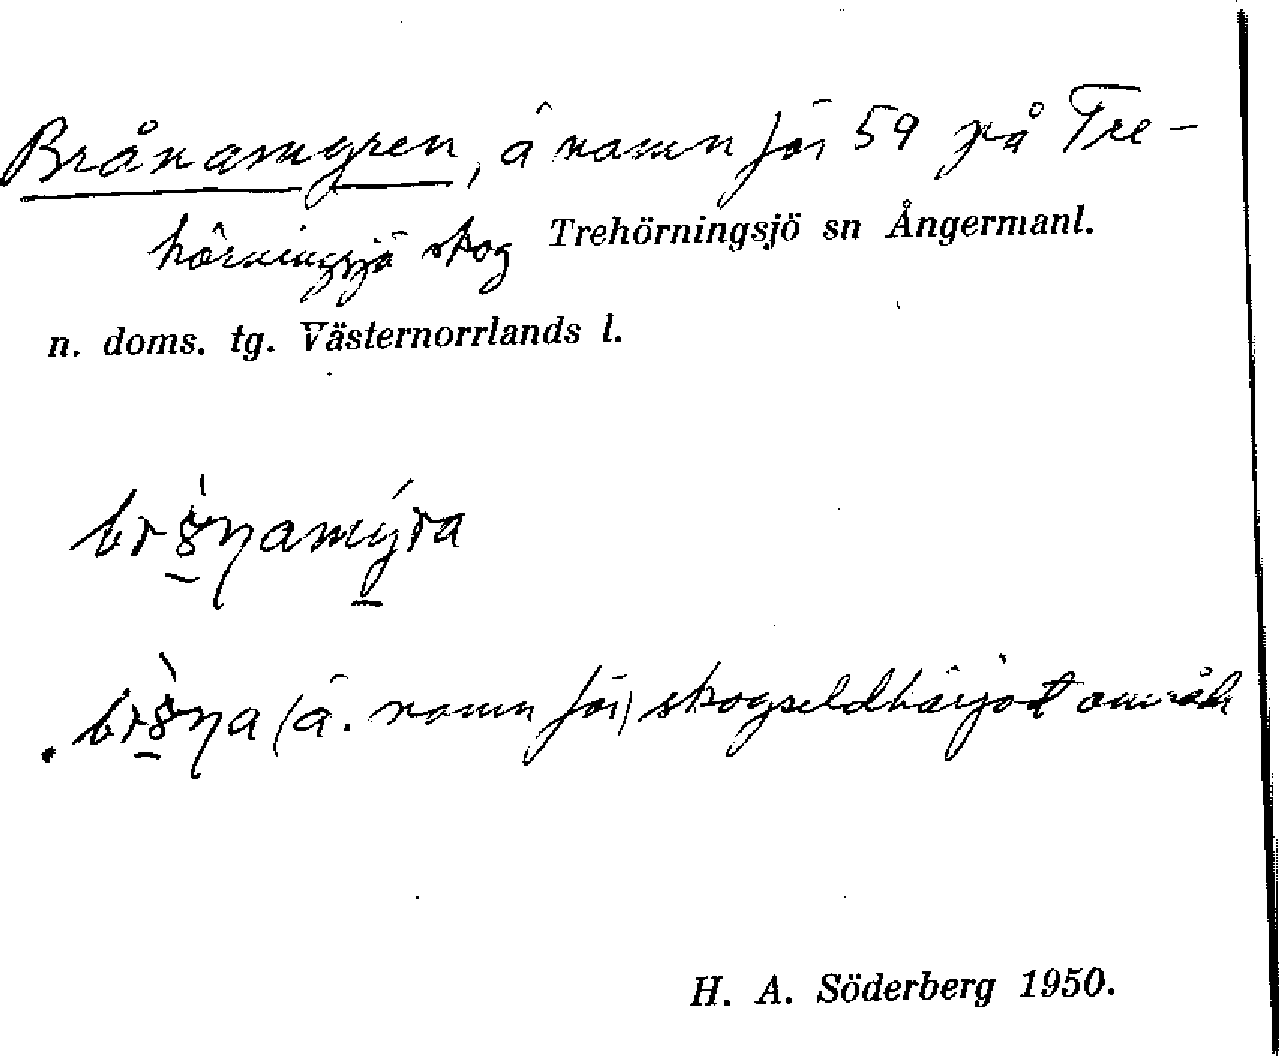 Brånamyren, ä namn för 59 på Tre-
hörningsjö skog Trehörningsjö sn Ångermanl.
n. doms. tg. Västernorrlands l.
brånamýra
bråna (ä. namn för) skogseldhärjat område
H. A. Söderberg 1950.